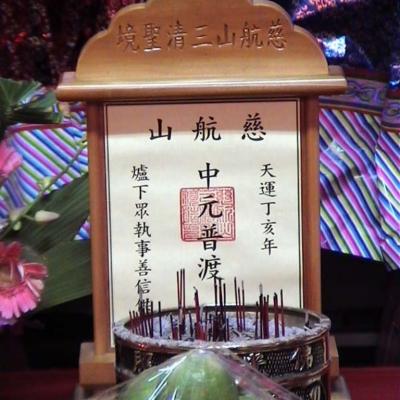 慈航山三清聖境
慈航山
天運丁亥年
中元普渡
爐下眾執事善信